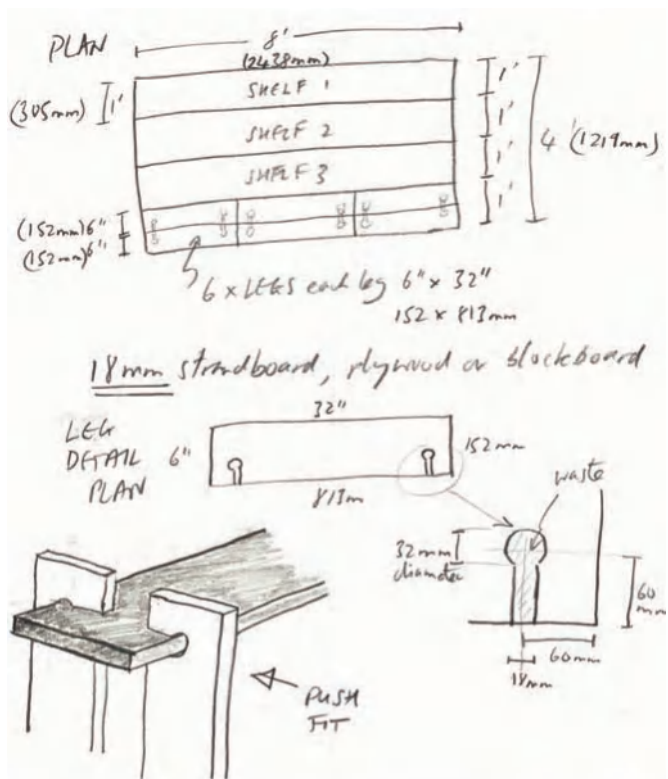 PLAN
8'
(2438mm)
(305mm) 1'
SHELF 1
SHELF 2
SHELF 3
1'
1'
1'
1'
4' (1219mm)
(152mm) 6"
(152mm) 6"
6 x LEGS each leg 6" x 32"
152 x 813mm
18mm strandboard, plywood or blockboard
LEG
DETAIL
PLAN
32"
6"
152mm
813m
waste
32mm
diameter
60
mm
60mm
18mm
PUSH
FIT